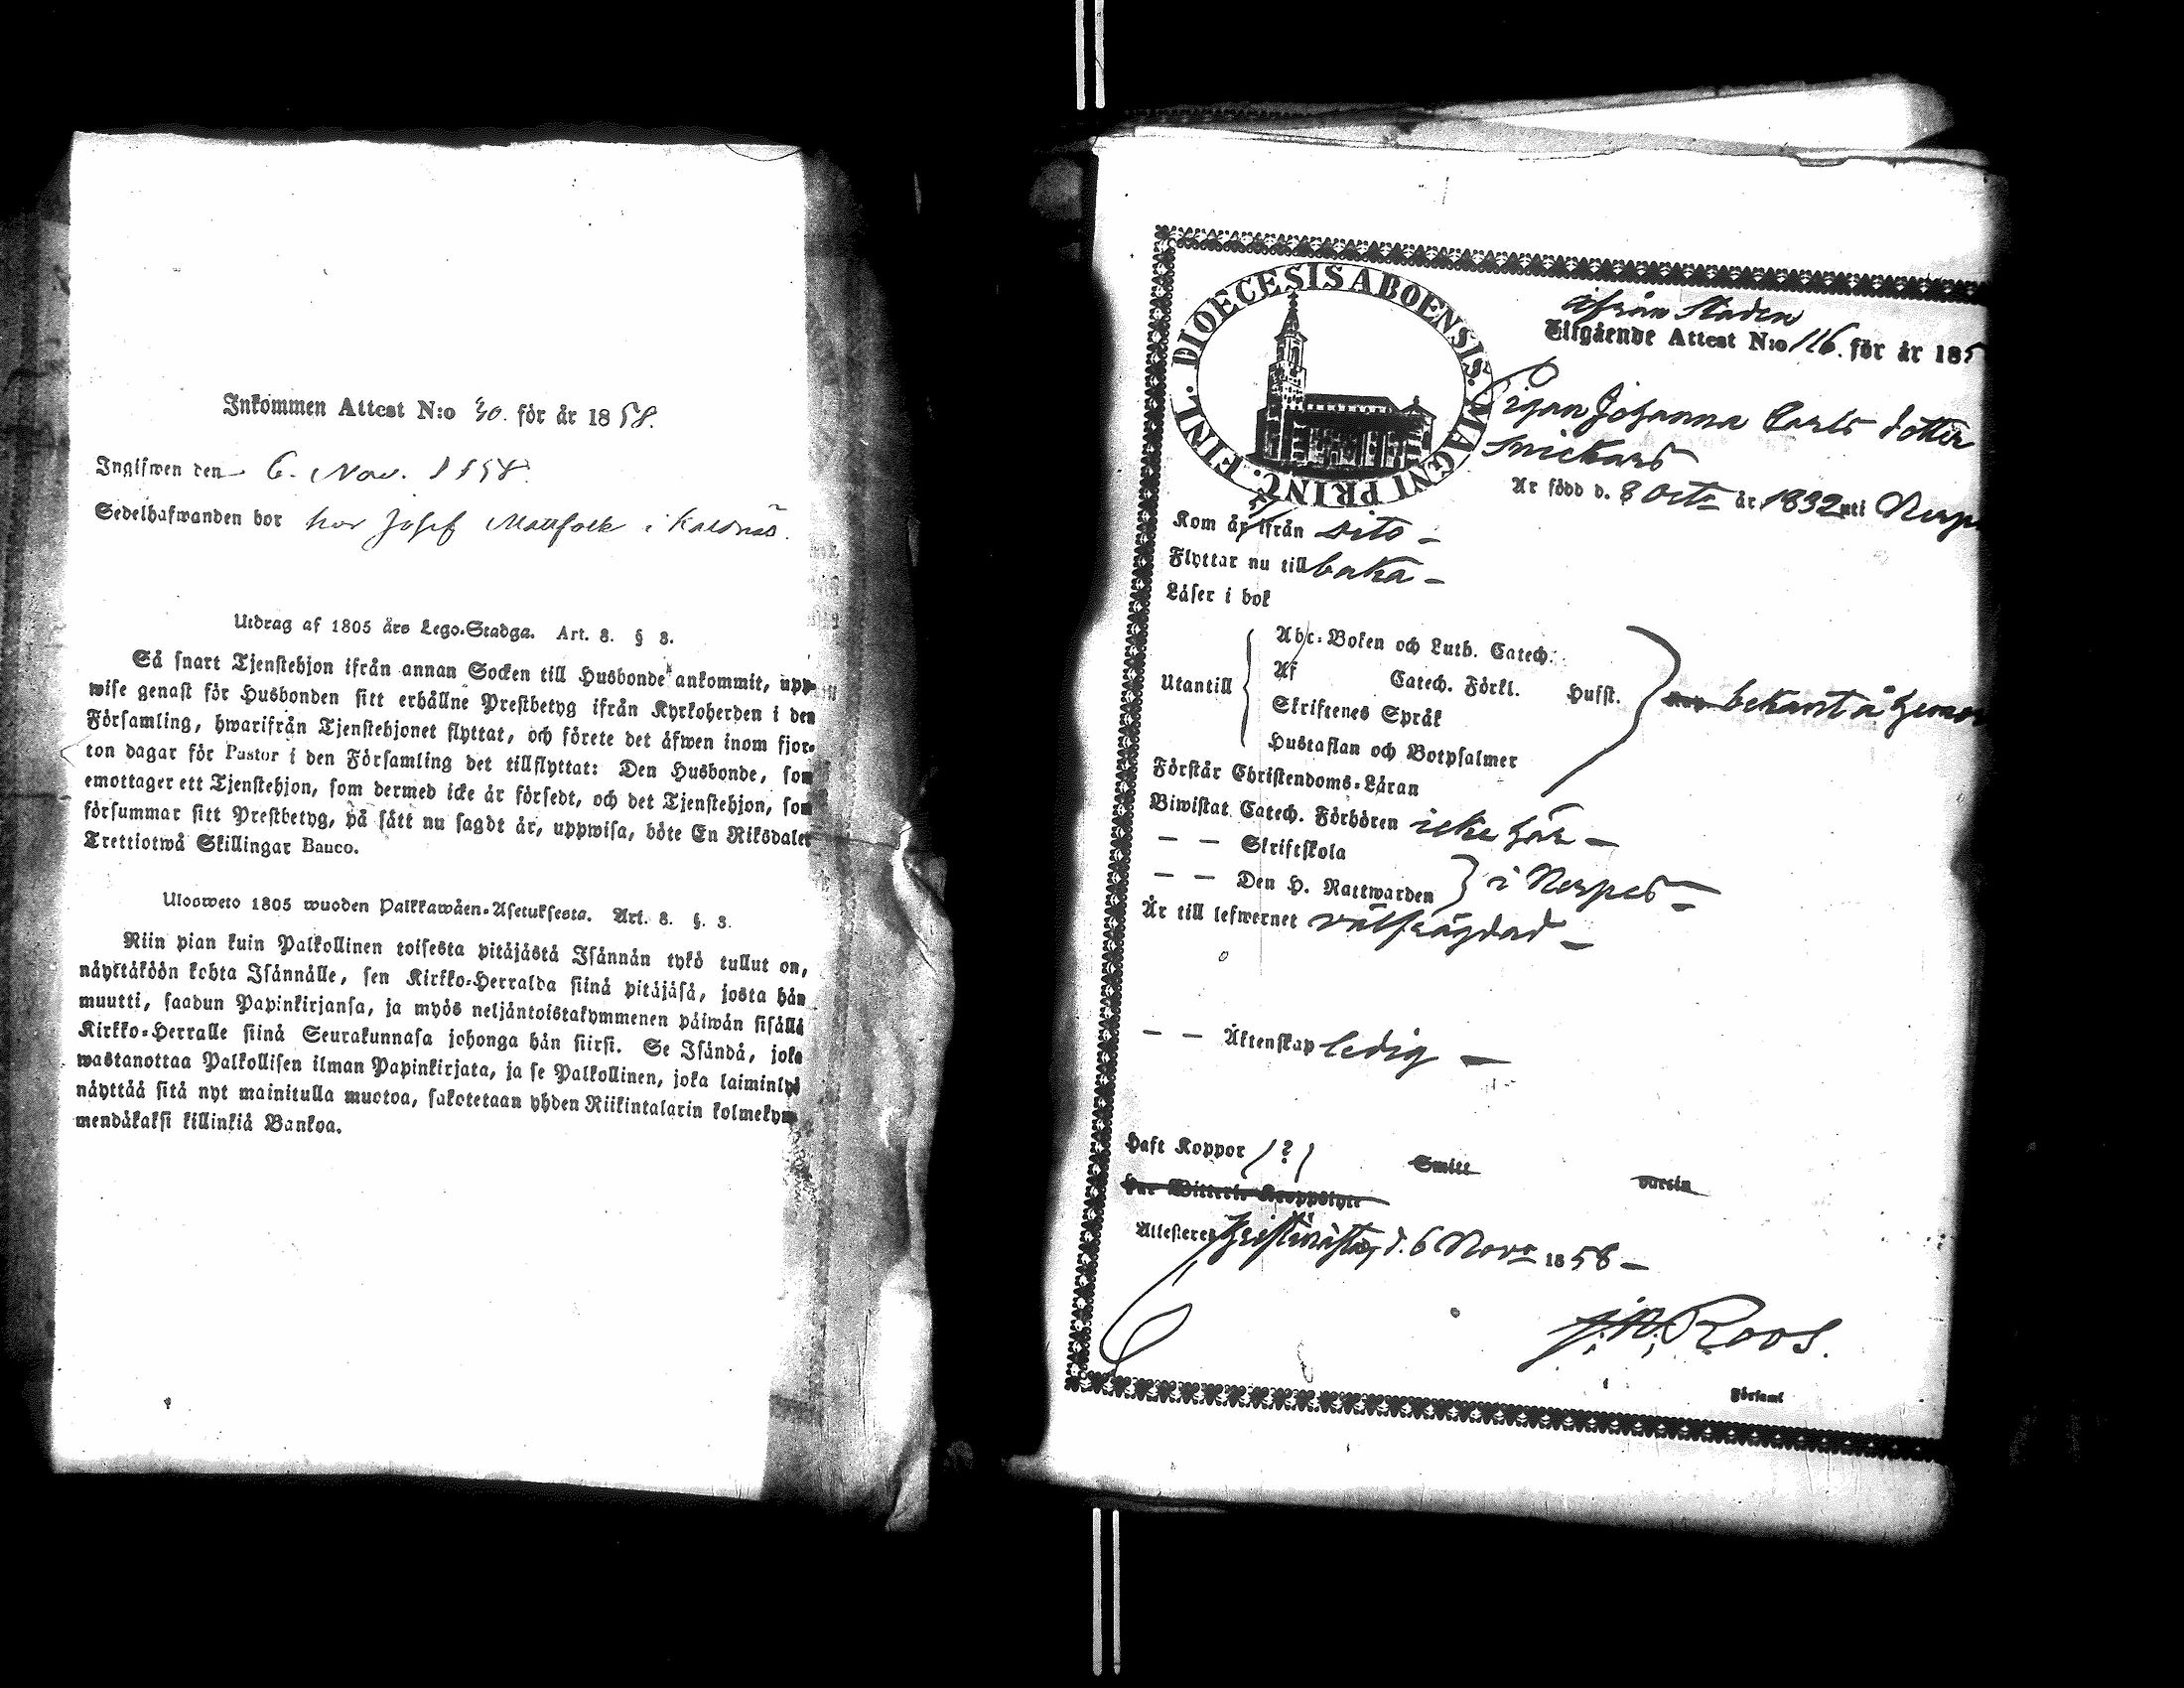 Inkommen Attest N:o 30. för år 1858.
Inglfwen den 6. Nov. 1858.
Sedelhafwanden bor hos Josef Mattfolk i Kaldnäs.
Utdrag af 1805 års Lego-Stadga. Art. 8. § 8.
Så snart Tjenstehjon ifrån annan Socken till Husbonde ankommit, upp-
wise genast för Husbonden sitt erhållne Prestbetyg ifrån Kyrkoherden i den
Församling, hwarifrån Tjenstehjonet flyttat, och förete det äfwen inom fjor-
ton dagar för Pastor i den Församling det tillflyttat: Den Husbonde, som
emottager ett Tjenstehjon, som dermed icke är försedt, och det Tjenstehjon, som
försummar sitt Prestbetyg, på sätt nu sagdt är, uppwisa, böte En Riksdaler
Trettiotwå Skillingar Banco.
Ulosweto 1805 wuoden Palkkawäen-Asetuksesta. Art. 8. §. 3.
Niin pian kuin Palkollinen toisesta pitäjästä Isännän tykö tullut on,
näyttäköön kohta Isännälle, sen Kirkko-Herralda siinä pitäjäsä, josta hän
muutti, saadun Papinkirjansa, ja myös neljäntoistakymmenen päiwän sisällä
Kirkko-Herralle siinä Seurakunnasa johonga hän siirsi. Se Isändä, joka
wastanottaa Palkollisen ilman Papinkirjata, ja se Palkollinen, joka laiminlyö
näyttää sitä nyt mainitulla muotoa, sakotetaan yhden Riikintalarin kolmekym-
mendäkaksi killinkiä Bankoa.
DIOECESIS ABOENSIS. MAGNI PRINC. FINL.
ifrån Staden
Utgående Attest N:o 116. för år 185
Pigan Johanna Carls dotter
Snickars
Är född d. 8 Octr år 1832 uti Nerp
Kom år 57 ifrån dito -
Flyttar nu till baka -
Läser i bok
Utantill
Abc-Boken och Luth. Catech.
Af Catech. Förkl. Husst.
Skriftenes Språk
Hustaflan och Botpsalmer
bekant å hemor
Förstår Christendoms-Läran
Biwistat Catech. Förhören icke här -
— — Skriftskola
— — Den H. Nattwarden } i Nerpes -
Är till lefwernet välfrägdad -
— — Äktenskap ledig -
Haft Koppor (?) Smitt
Attesteres Christinestad, d. 6 Novr 1858 -
Roos.
i Församl